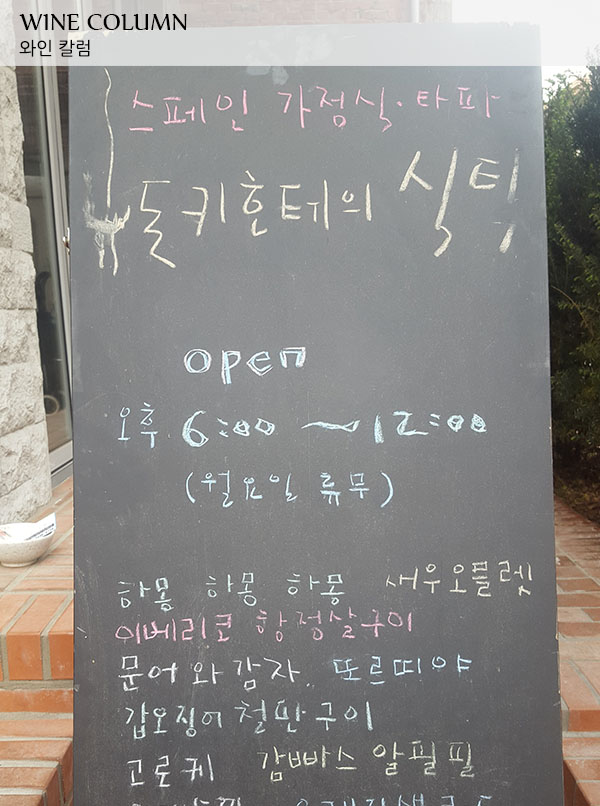 WINE COLUMN
와인 칼럼
스페인 가정식·타파
돌키호테의 식탁
open
오후 6:00 ~ 12:00
(월요일 휴무)
하몽 하몽 하몽 새우오믈렛
이베리코 항정살구이
문어와감자. 또르띠야
갑오징어철판구이
고로케 감빠스알필필